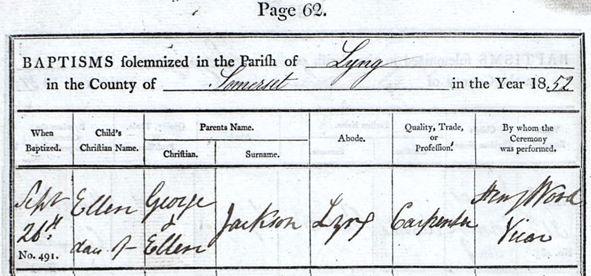 Page 62.
BAPTISMS solemnized in the Parish of Lyng
in the County of Somerset in the Year 1852
When Baptized.
Child's Christian Name.
Parents Name.
Christian.
Surname.
Abode.
Quality, Trade, or Profession.
By whom the Ceremony was performed.
Sept 26th
No. 491.
Ellen
dau of
George & Ellen
Jackson
Lyng
Carpenter
Wood
Vicar